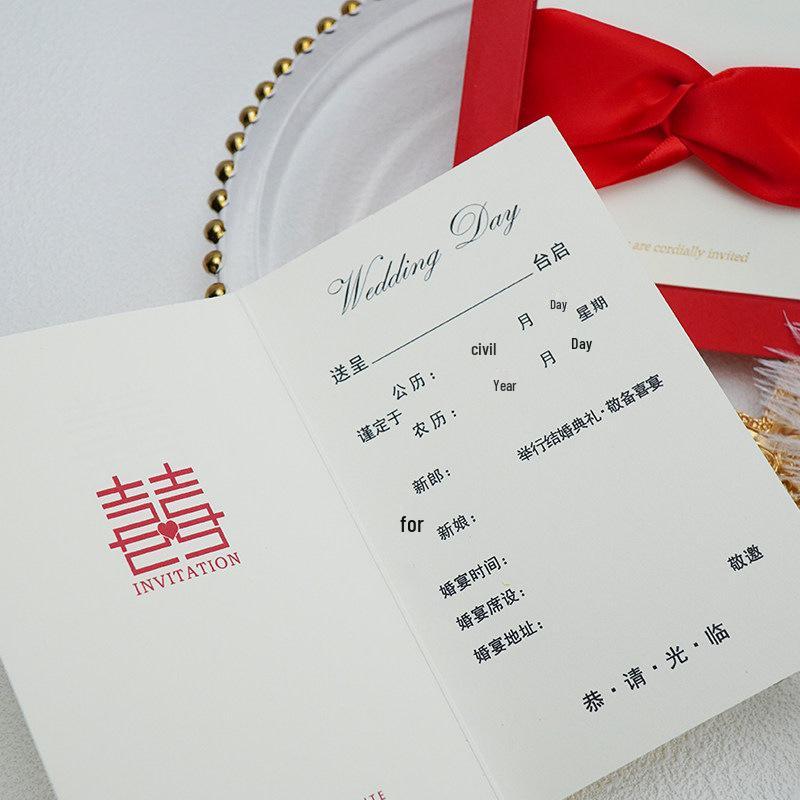 are cordially invited
Wedding Day
送呈 台启
公历: civil 月 Day 星期
谨定于
农历: Year 月 Day
举行结婚典礼·敬备喜宴
新郎:
for 新娘:
婚宴时间:
敬邀
婚宴席设:
婚宴地址:
恭·请·光·临
囍
INVITATION